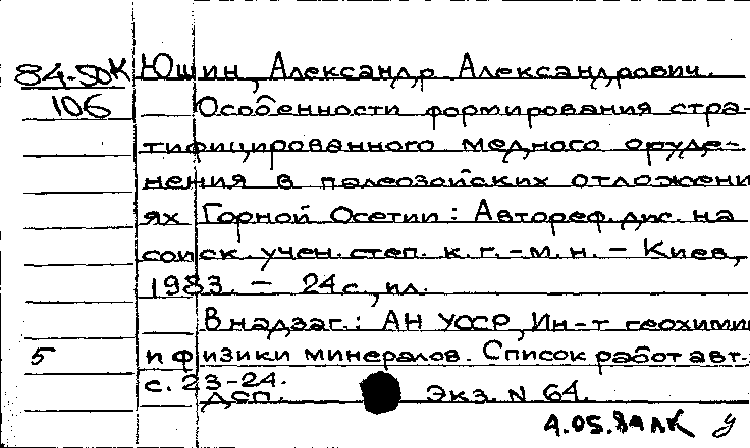 84-50К Юшин, Александр Александрович.
106 Особенности формирования стра-
тифицированного медного оруде-
нения в палеозойских отложени-
ях Горной Осетии: Автореф. дис. на
соиск. учен. степ. к. г.-м. н. - Киев,
1983. - 24 с., ил.
В надзаг.: АН УССР, Ин-т геохимии
5 и физики минералов. Список работ авт.:
с. 23-24.
ДСП. Экз. N 64.
4.05.84 ЛК